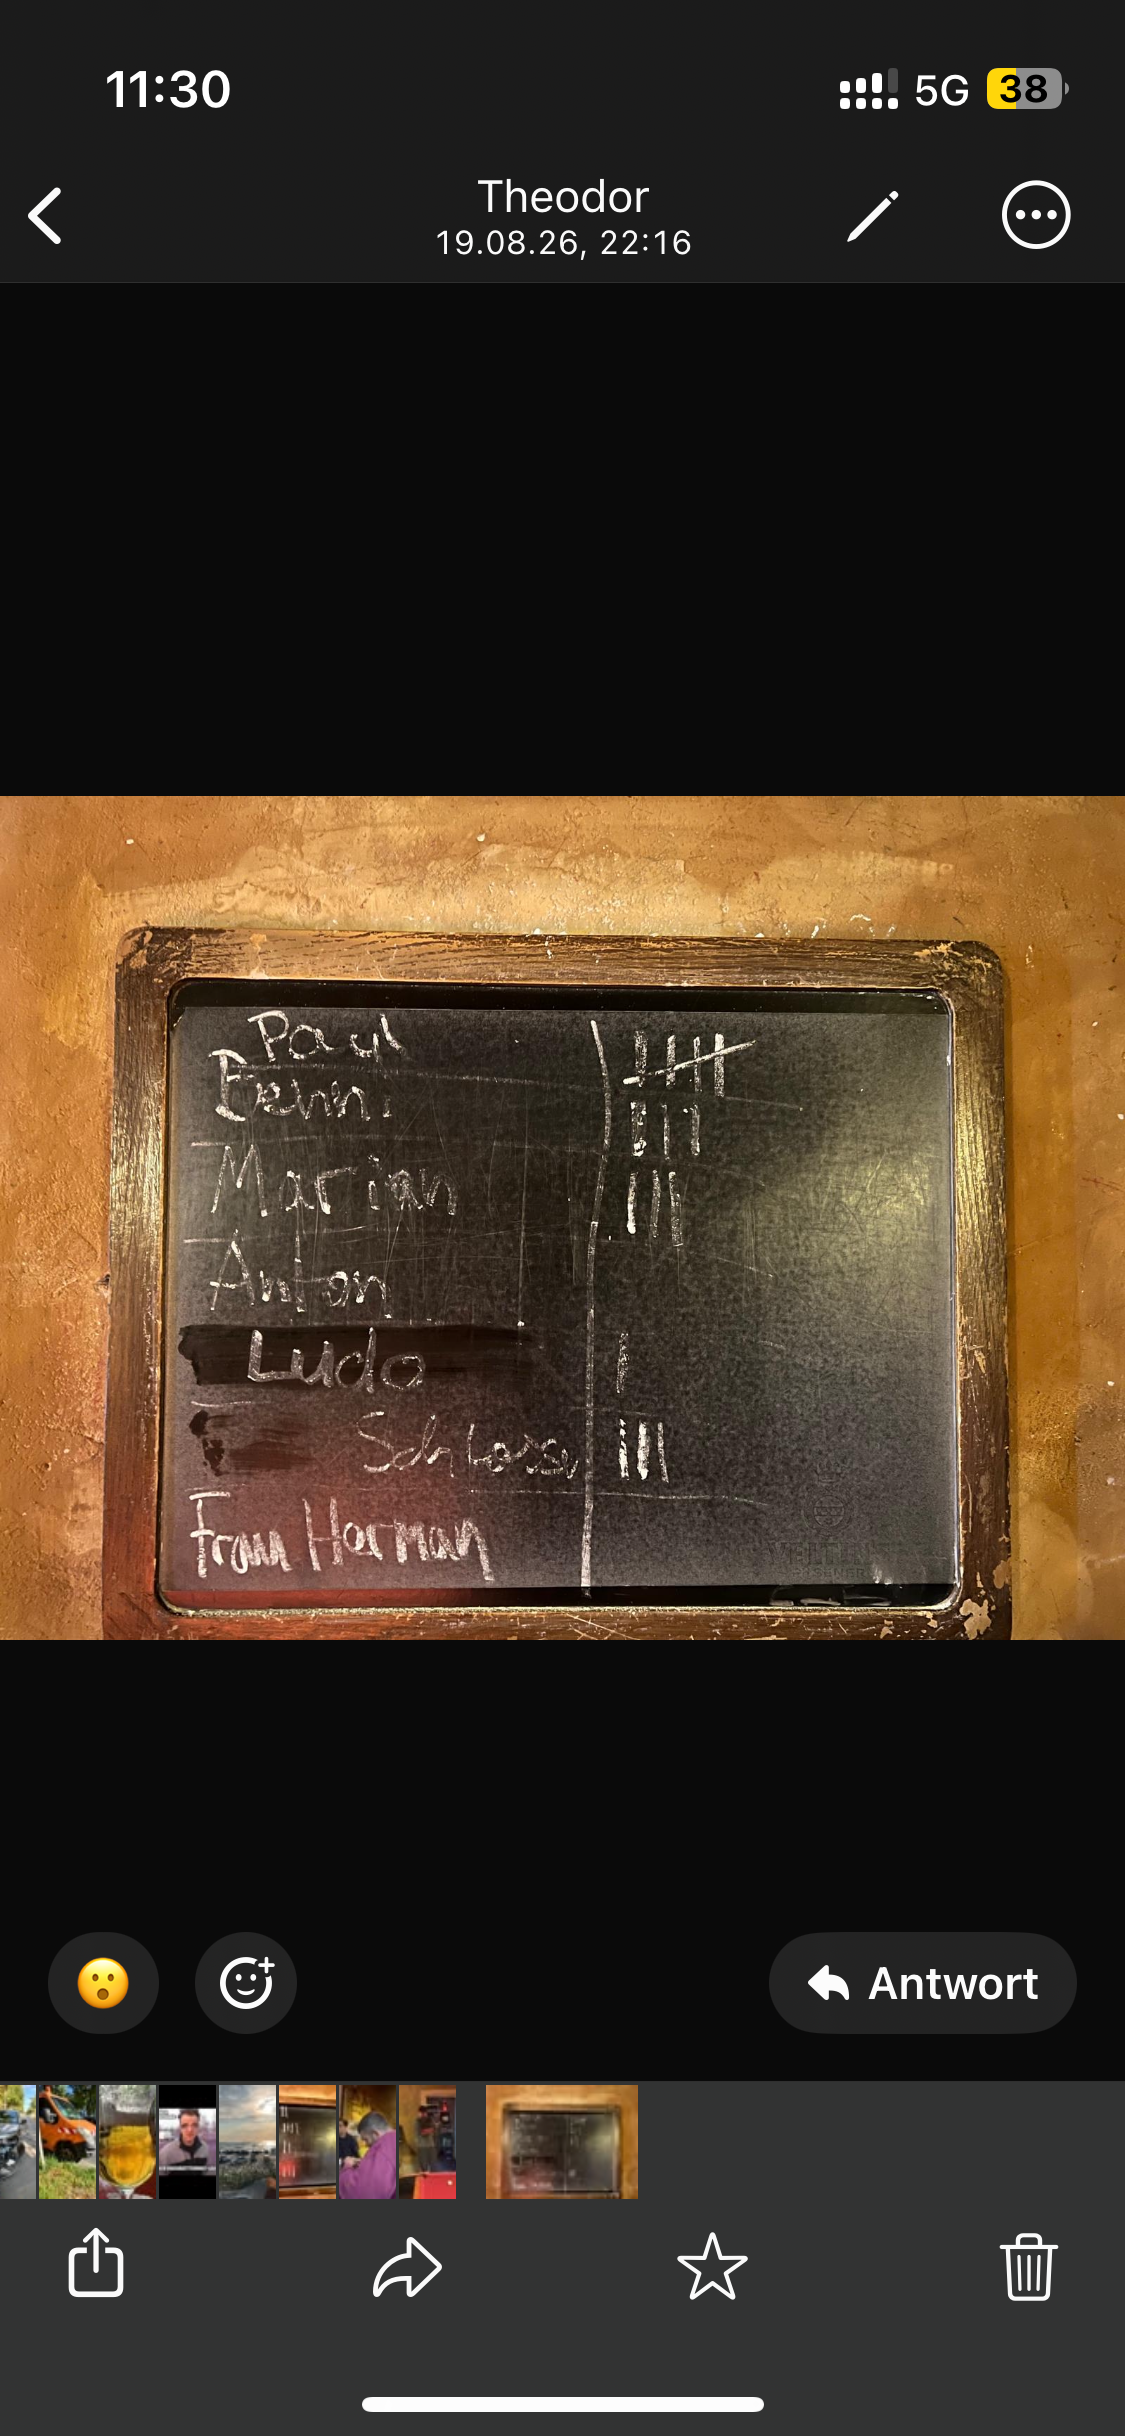 11:30
5G 38
Theodor
19.08.26, 22:16
Paul
Benni
Marian
Anton
Ludo
Schlosser
Frau Harman
VELTINS
PILSENER
Antwort